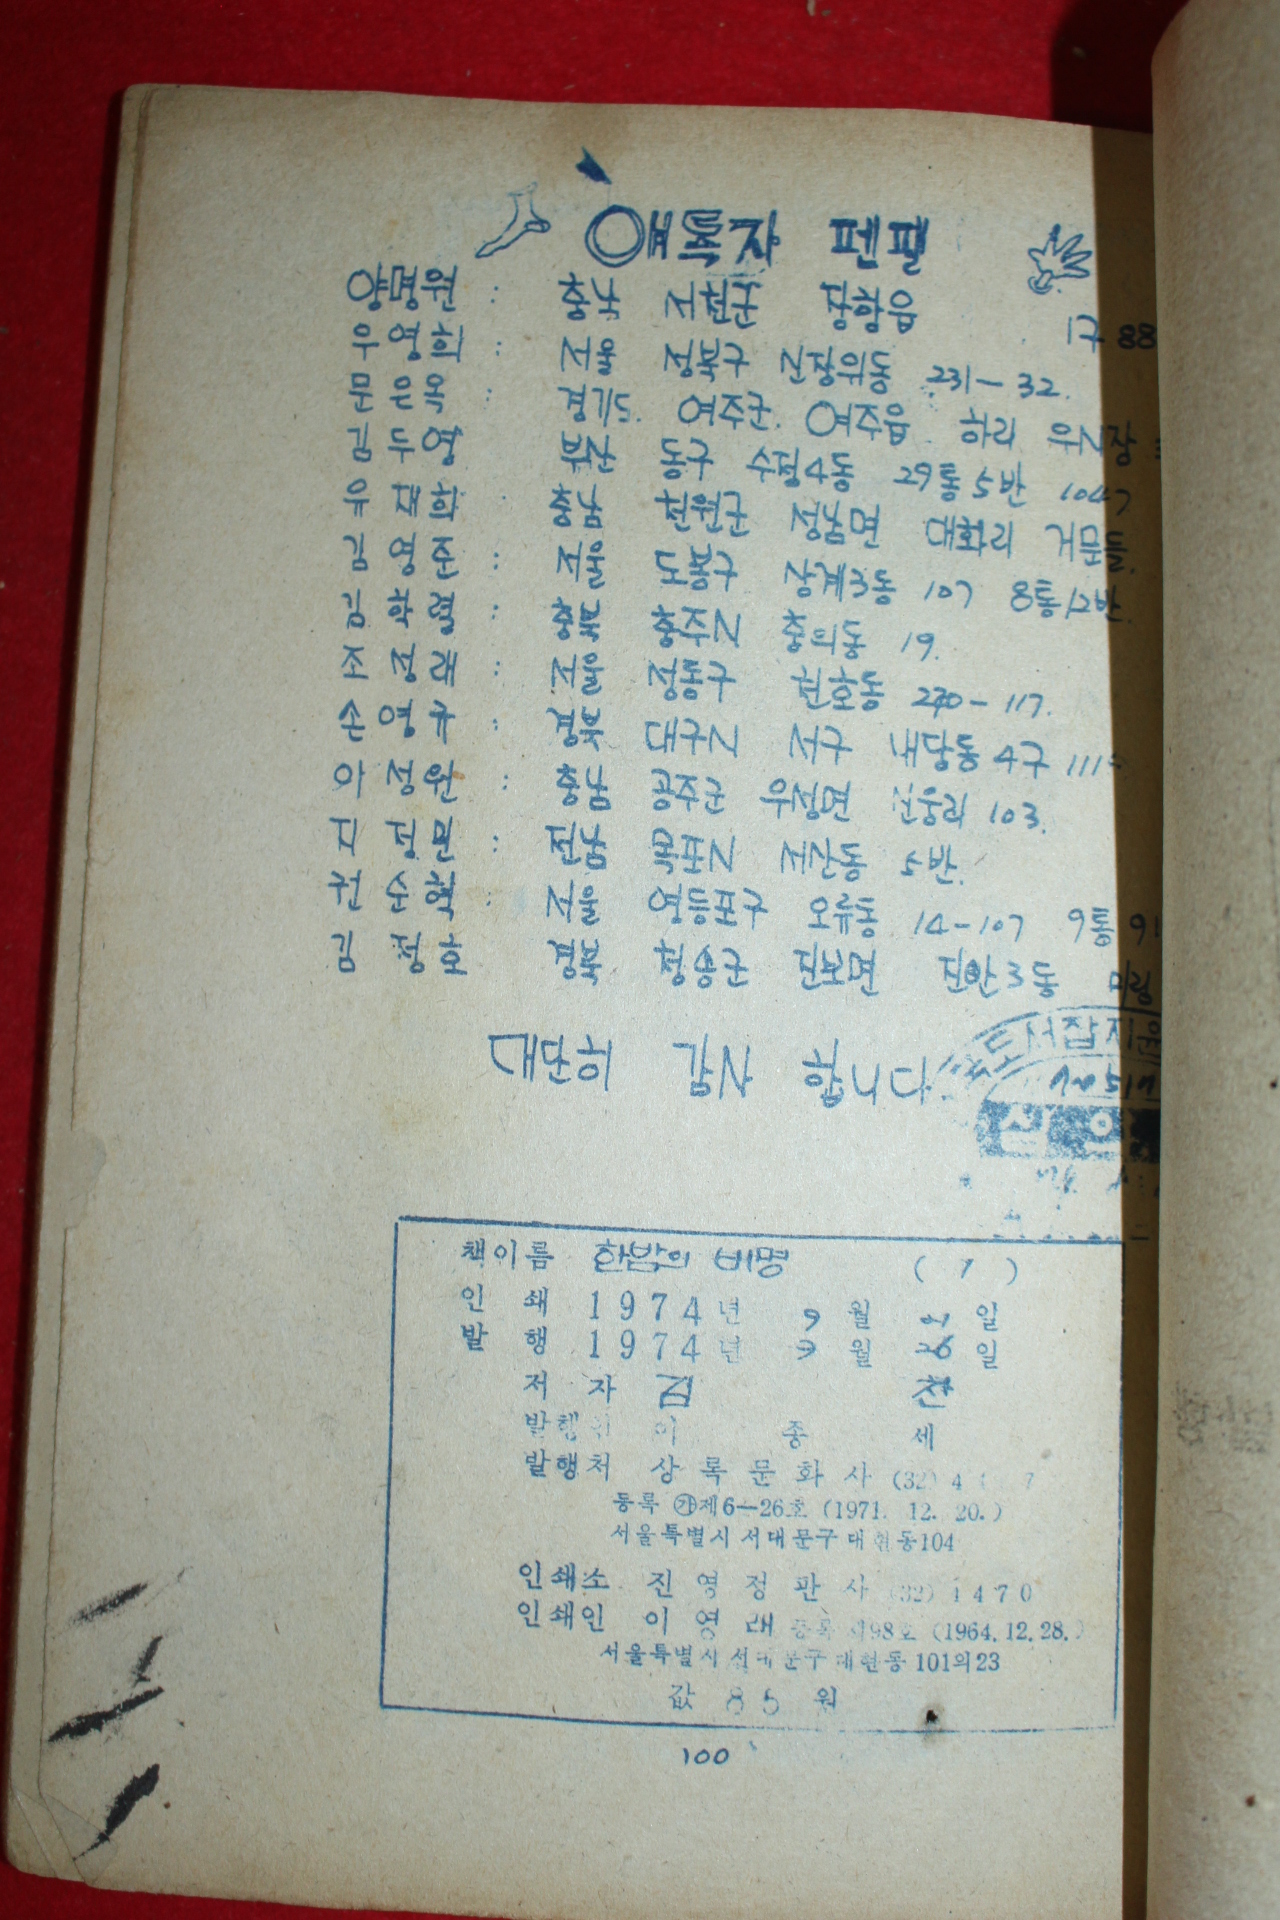 애독자 펜팔
양명원 : 충남 서천군 장항읍 1구 88
우영희 : 서울 성북구 장위동 231-32.
문은옥 : 경기도. 여주군. 여주읍 하리
김두영 부산 동구 수정4동 29통 5반 1047
유재희 충남 천원군 성남면 대화리 거문들.
김영준 : 서울 도봉구 상계3동 107 8통 12반.
김학렬 : 충북 충주시 충의동 19.
조정래 : 서울 성동구 천호동 270-117.
손영규 : 경북 대구시 서구 내당동 4구
이성원 : 충남 공주군 우성면 103.
지정민 : 전남 목포시 서산동 5반.
권순혁 : 서울 영등포구 오류동 14-107 9통
김정호 경북 청송군 진보면 진안3동
대단히 감사 합니다.
도서잡지
책이름 한밤의 비명 ( 1 )
인쇄 1974년 9월 일
발행 1974년 9월 26일
저자 김 천
발행인 이 종 세
발행처 상록문화사 (32) 4
등록 ㉮제6—26호 (1971. 12. 20.)
서울특별시 서대문구 대현동104
인쇄소 진영정판사 (32) 4470
인쇄인 이영래 등록 제98호 (1964. 12. 28.)
서울특별시 서대문구 대현동 101의23
값 85 원
100